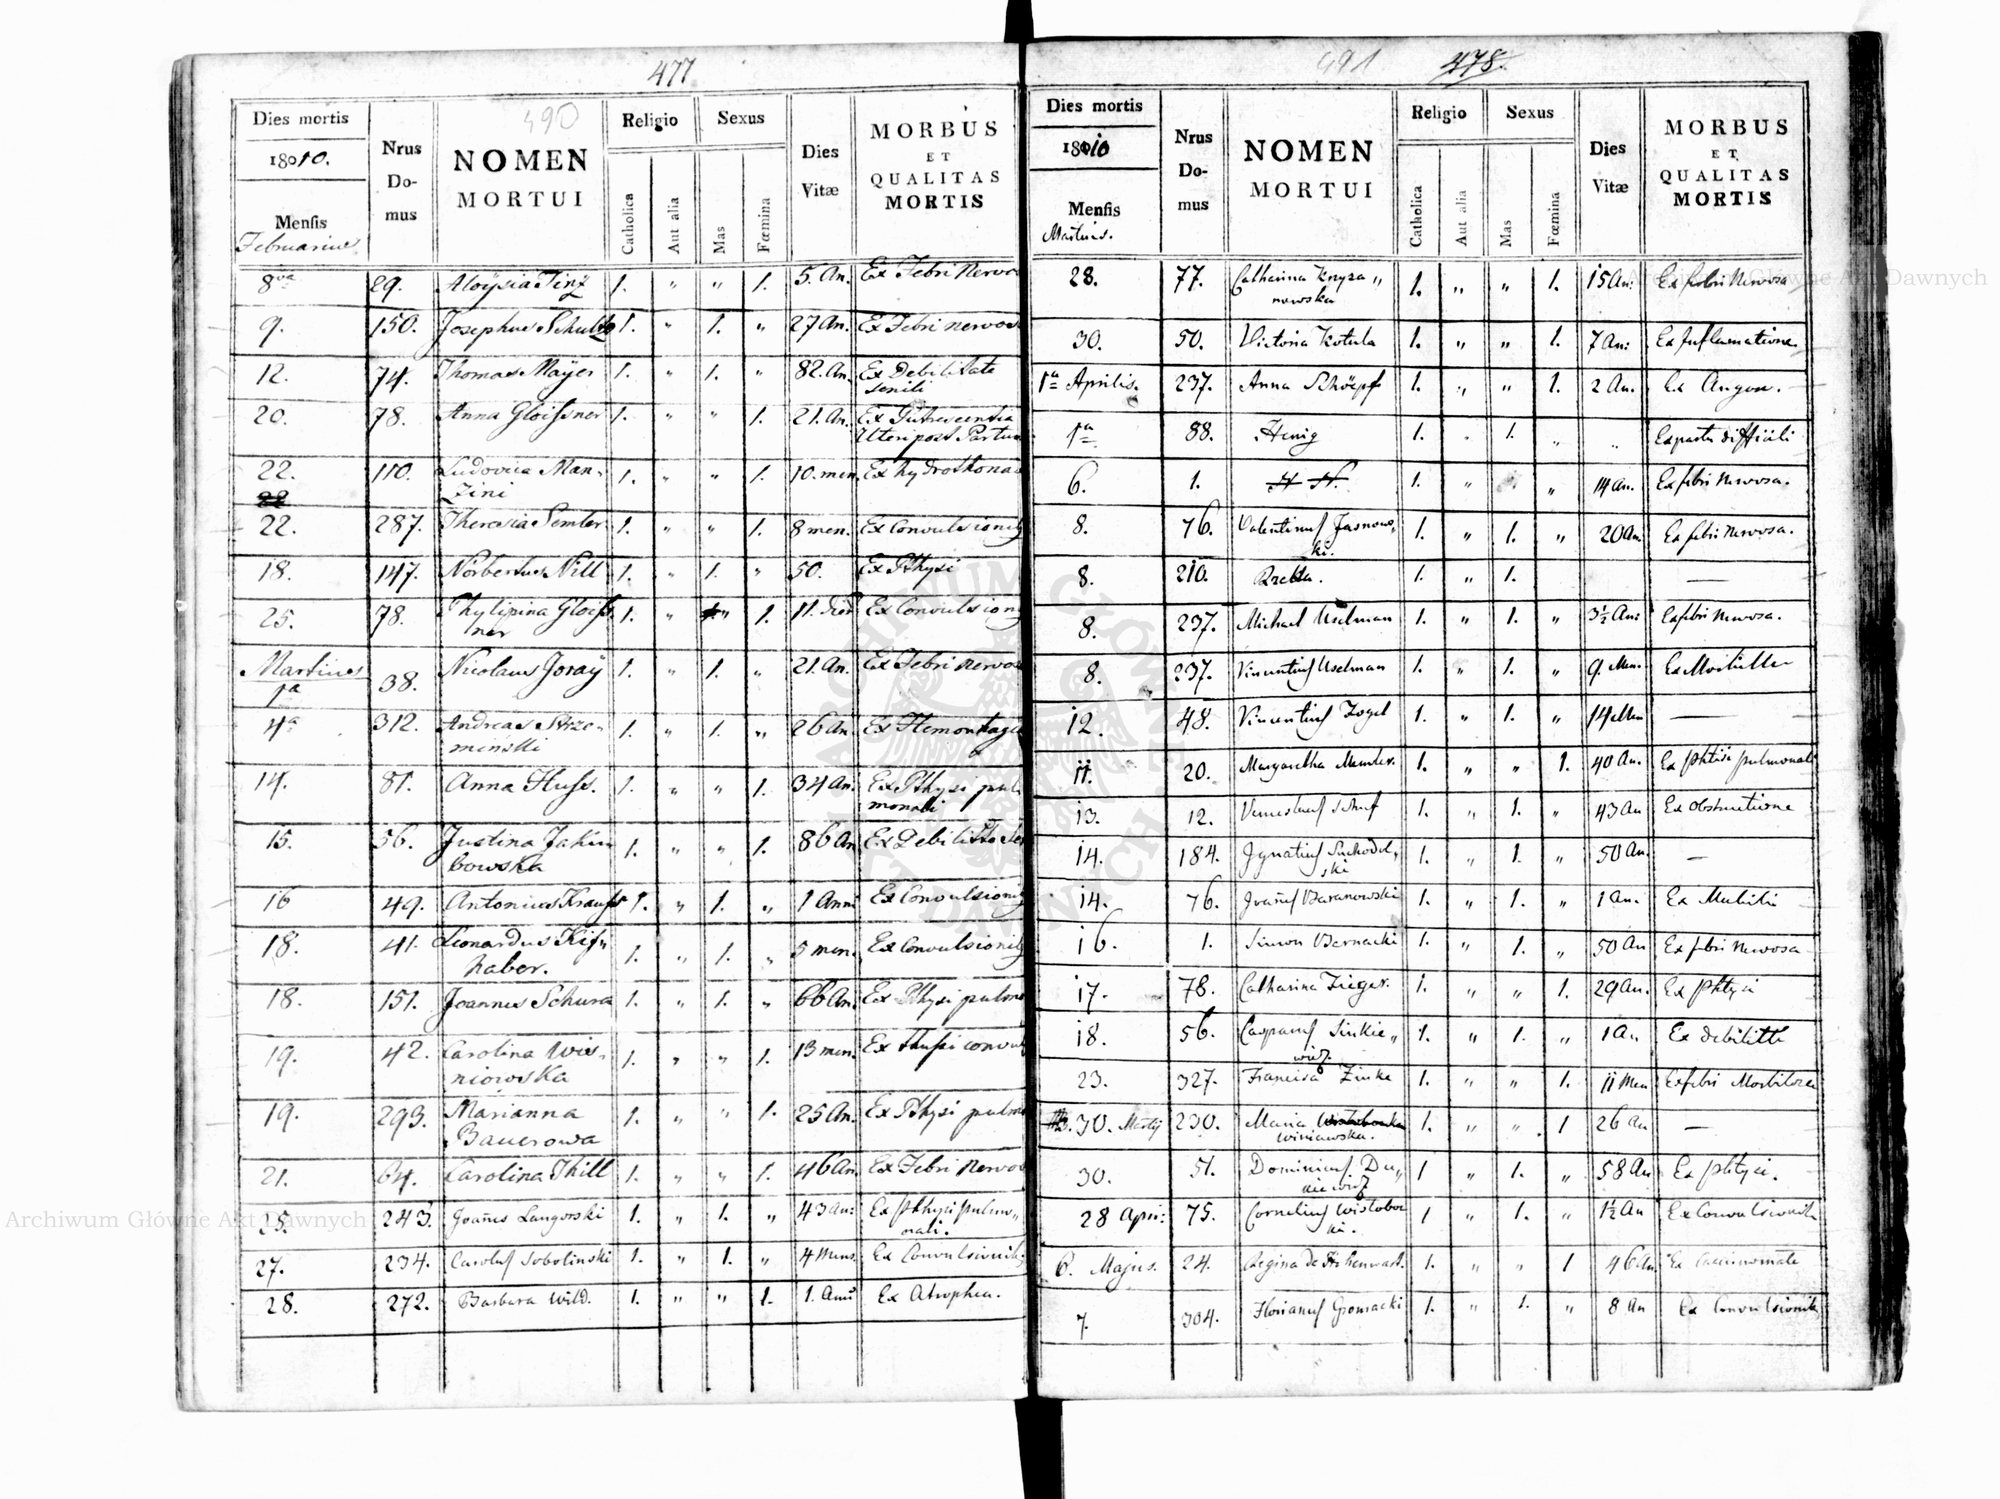 477
490
Dies mortis
1810.
Mensis
Februarius
Nrus
Do-
mus
NOMEN
MORTUI
Religio
Catholica
Aut alia
Sexus
Mas
Fœmina
Dies
Vitæ
MORBUS
ET
QUALITAS
MORTIS
8va 29. Aloÿsia Tinz 1. " " 1. 5. An. Ex Febri Nervo
9. 150. Josephus Schultz 1. " 1. " 27 An. Ex Febri nervos
12. 74. Thomas Mayer 1. " 1. " 82. An. Ex Debilitate
senili
20. 78. Anna Gloissner 1. " " 1. 21. An. Ex Putrescentia
Uteri post Partum
22. 110. Ludovica Man-
zini 1. " " 1. 10. men. Ex hydrothora
22. 287. Theresia Semler 1. " " 1. 8 men. Ex Convulsionib
18. 147. Norbertus Nill 1. " 1. " 50. Ex Pthysi
25. 78. Phylipina Gloiss
ner 1. " " 1. 11. Ex Convulsion
Martius
1a 38. Nicolaus Joraÿ 1. " 1. " 21. An. Ex Febri nervos
4a 312. Andreas Strze-
menski 1. " 1. " 26 An. Ex Hemorhagi
14. 81. Anna Huss. 1. " " 1. 34 An. Ex Pthysi pul
monali
15. 56. Justina Jaku
bowska 1. " " 1. 86 An. Ex Debilitte Sen
16 49. Antonius Krauss 1. " 1. " 1 Anni Ex Convulsionib
18. 41. Leonardus Kis"
haber. 1. " 1. " 5 men. Ex Convulsionib
18. 151. Joannes Schura 1. " 1. " 66 An. Ex Pthysi pulmo
19. 42. Carolina Wis-
niowska 1. " " 1. 13 men. Ex thussi convul
19. 293. Marianna
Bauerowa 1. " " 1. 25 An. Ex Pthysi pulmo
21. 64. Carolina Thill 1. " " 1. 46 An. Ex Febri nervos
25. 243. Joañes Langorski 1. " 1. " 43 An: Ex pthysi pulmo"
nali.
27. 234. Carolus Sobolinski 1. " 1. " 4 Mens. Ex Convulsionib.
28. 272. Barbara Wild. 1. " " 1. 1. Ex Atrophia.
491
478.
Dies mortis
1810
Mensis
Martius.
Nrus
Do-
mus
NOMEN
MORTUI
Religio
Catholica
Aut alia
Sexus
Mas
Fœmina
Dies
Vitæ
MORBUS
ET
QUALITAS
MORTIS
28. 77. Catharina Knyza"
nowska 1. " " 1. 15 An: Ex febri Nervosa
30. 50. Victoria Kotula 1. " " 1. 7 An: Ex Inflamatione
1a Aprilis. 237. Anna Schöepf 1. " " 1. 2 An. Ex Angva.
1a 88. Henig 1. " 1. " " Ex partu difficili
6. 1. N N. 1. " " 14 An. Ex febri Nervosa.
8. 76. Valentinus Jasnows,
ki. 1. " 1. " 20 An. Ex febri Nervosa.
8. 210. 1. " 1. —
8. 237. Michael Uselman 1. " 1. " 3½ An: Ex febri Nervosa.
8. 237. Vincentius Uselman 1. " 1. " 9. Men. Ex Morbillis
12. 48. Vincentius Zogel 1. " 1. " 14 Men —
11. 20. Margaretha Memler. 1. " " 1. 40 An. Ex Phtisi pulmonali
13. 12. Venceslaus Schuf 1. " 1. " 43 An Ex Obstructione
14. 184. Ignatius Suchodol,
ski 1. " 1. " 50 An. —
14. 76. Joañes Baranowski 1. " 1. " 1 An: Ex
16. 1. Simon Bernacki 1. " 1. " 50 An Ex febri nervosa
17. 78. Catharina Zieger. 1. " " 1. 29 An. Ex Phtysi
18. 56. Casparus Sinkie"
wicz. 1. " 1. " 1 An Ex debilitte
23. 327. Francisca Zinke 1. " " 1. 11 Men Ex febri Morbilosa
30. Martij 230. Maria
Winiawska. 1. " " 1 26 An —
30. 51. Dominicus Du"
kiewicz 1 " 1. " 58 An Ex phtysi.
28 April: 75. Cornelius Wistobor
ki. 1 " 1. " 1½ An Ex Convulsionib
6. Majus. 24. Regina de Hohenwart. 1. " " 1 46 An. Ex Carcinomate
7. 304. Florianus Gromacki 1. " 1. " 8 An Ex Convulsionib
Archiwum Główne Akt Dawnych
Archiwum Główne Akt Dawnych
ARCHIWUM GŁÓWNE AKT DAWNYCH